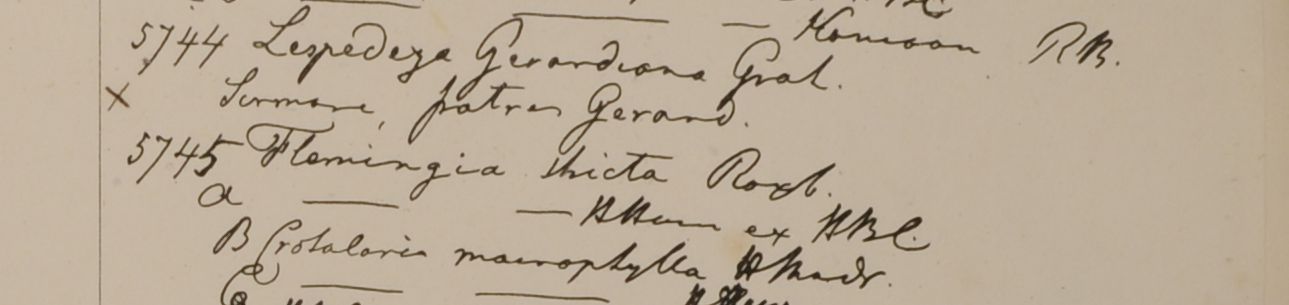 — Kamaon RB.
5744 Lespedeza Gerardiana Grah.
× Sirmore, fratres Gerard.
5745 Flemingia stricta Roxb.
a — — HHam ex HBC.
B Crotalaria macrophylla HMadr.